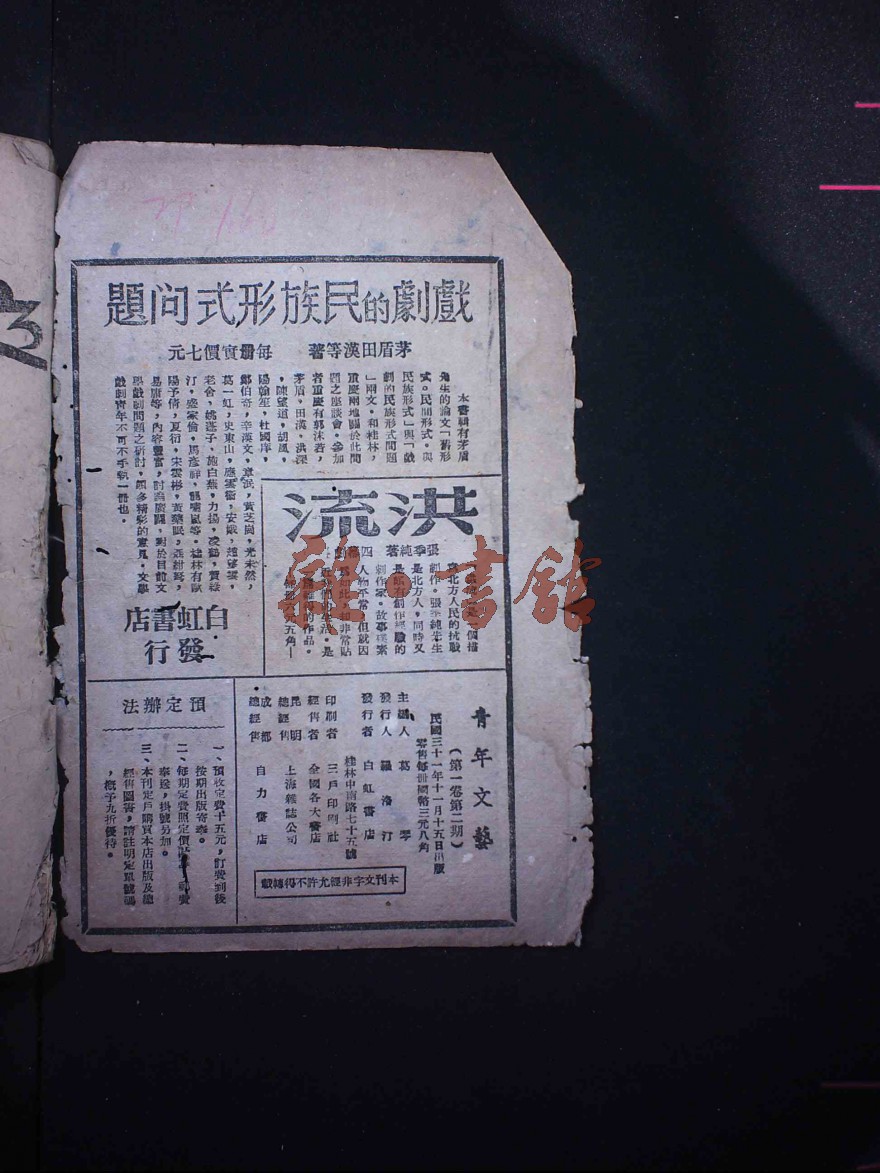 戲劇的民族形式问題
茅盾田漢等著　每冊實價七元
本書輯有茅盾
先生的論文「舊形
式・民間形式・與
民族形式」與「戲
劇的民族形式問題
」兩文，和桂林，
重慶兩地關於此問
題之座談會，參加
者重慶有郭沫若，
茅盾，田漢，洪深
，陳望道，胡風，
陽翰笙，杜國庠，
鄭伯奇，辛漢文，章泯，黃芝崗，光未然，
葛一虹，史東山，應雲衛，安娥，趙望雲，
老舍，姚蓬子，施白蕪，力揚，凌鶴，賀綠
汀，盛家倫，馬彥祥，龍嘯嵐等。桂林有歐
陽予倩，夏衍，宋雲彬，黃藥眠，聶紺弩，
易庸等，內容豐富，討論廣闊，對於目前文
學戲劇問題之研討，頗多精彩的意見，文學
戲劇青年不可不手執一冊也。
洪流
張季純著　四幕劇
寫北方人民的抗戰
創作。張季純先生
是北方人，同時又
是頗有創作經驗的
劇作家，故事樸素
人物平常，但就因
爲如此，却非常貼
近我們的生活，是
的作品。
每冊六元五角
白虹書店
發行
青年文藝
（第一卷第二期）
民國三十一年十一月十五日出版
零售每冊國幣三元八角
主編人　葛琴
發行人　羅洛汀
發行者　白虹書店
桂林中南路七十五號
印刷者　三戶印刷社
經售者　全國各大書店
昆明總經售　上海雜誌公司
成都總經售　自力書店
本刊文字非經允許不得轉載
預定辦法
一、預收定費十五元，訂費到後
按期出版寄奉。
二、每期定費照定價 郵費
奉送，掛號另加。
三、本刊定戶購買本店出版及總
經售圖書，請註明定單號碼
，概予九折優待。
書舘